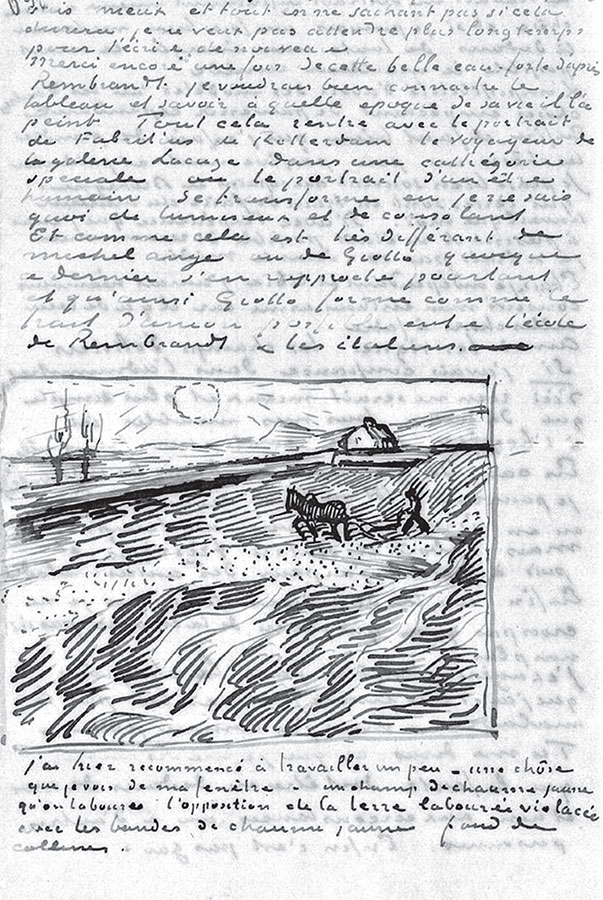 vais mieux et tout en ne sachant pas si cela
durera, je ne veux pas attendre plus longtemps
pour t'écrire de nouveau
Merci encore une fois de cette belle eau-forte d'après
Rembrandt. je voudrais bien connaitre le
tableau et savoir à quelle epoque de sa vie il l'a
peint Tout cela rentre avec le portrait
de Fabritius de Rotterdam le voyageur de
la galerie Lacaze dans une cathégorie
speciale ou le portrait d'un être
humain se transforme en je ne sais
quoi de lumineux et de consolant
Et comme cela est très différent de
michel ange ou de Giotto quoique
ce dernier s'en rapproche pourtant
et qu'ainsi Giotto forme comme le
trait d'union possible entre l'école
de Rembrandt & les italiens.
j'ai hier recommencé à travailler un peu – une chôse
que je vois de ma fenêtre – un champ de chaume jaune
qu'on laboure l'opposition de la terre labourée violacée
avec les bandes de chaume jaune fond de
collines.